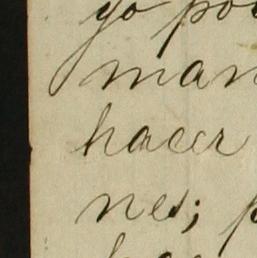 yo po
man
hacer
nes; p